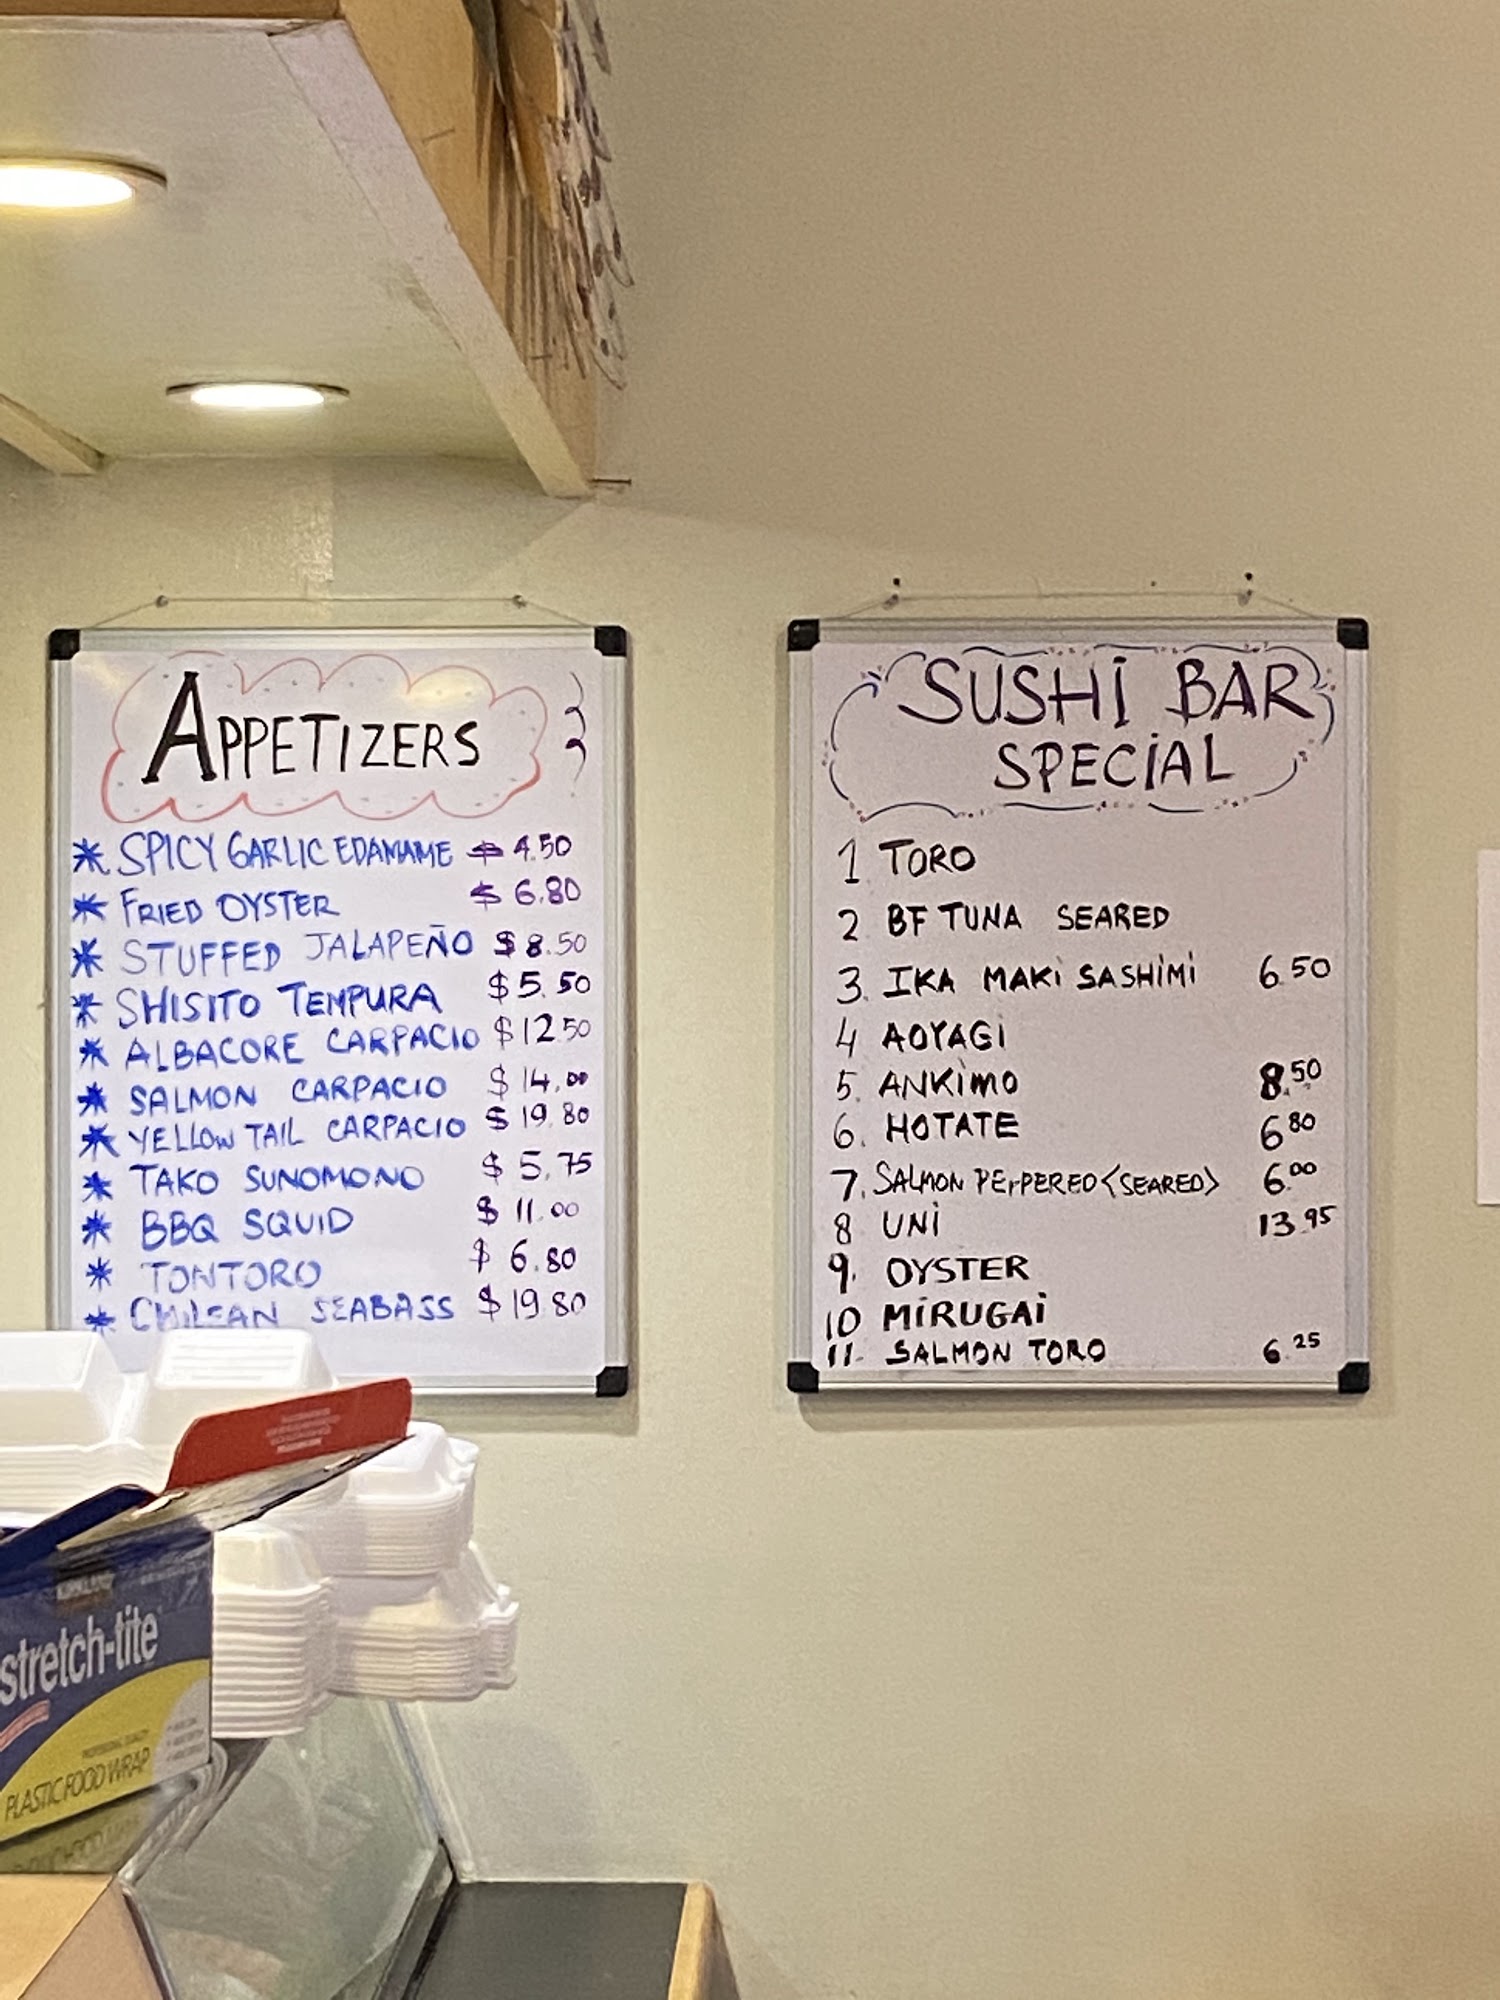 APPETIZERS
SPICY GARLIC EDAMAME $ 4.50
FRIED OYSTER $ 6.80
STUFFED JALAPEÑO $ 8.50
SHISITO TEMPURA $5.50
ALBACORE CARPACIO $12.50
SALMON CARPACIO $14.00
YELLOW TAIL CARPACIO $19.80
TAKO SUNOMONO $5.75
BBQ SQUID $11.00
TONTORO $6.80
CHILEAN SEABASS $19.80
SUSHI BAR
SPECIAL
1 TORO
2 BF TUNA SEARED
3. IKA MAKI SASHIMI 6.50
4 AOYAGI
5. ANKIMO 8.50
6. HOTATE 6.80
7. SALMON PEPPERED <SEARED> 6.00
8 UNI 13.95
9. OYSTER
10 MIRUGAI
11. SALMON TORO 6.25
KIRKLAND
stretch-tite
PLASTIC FOOD WRAP